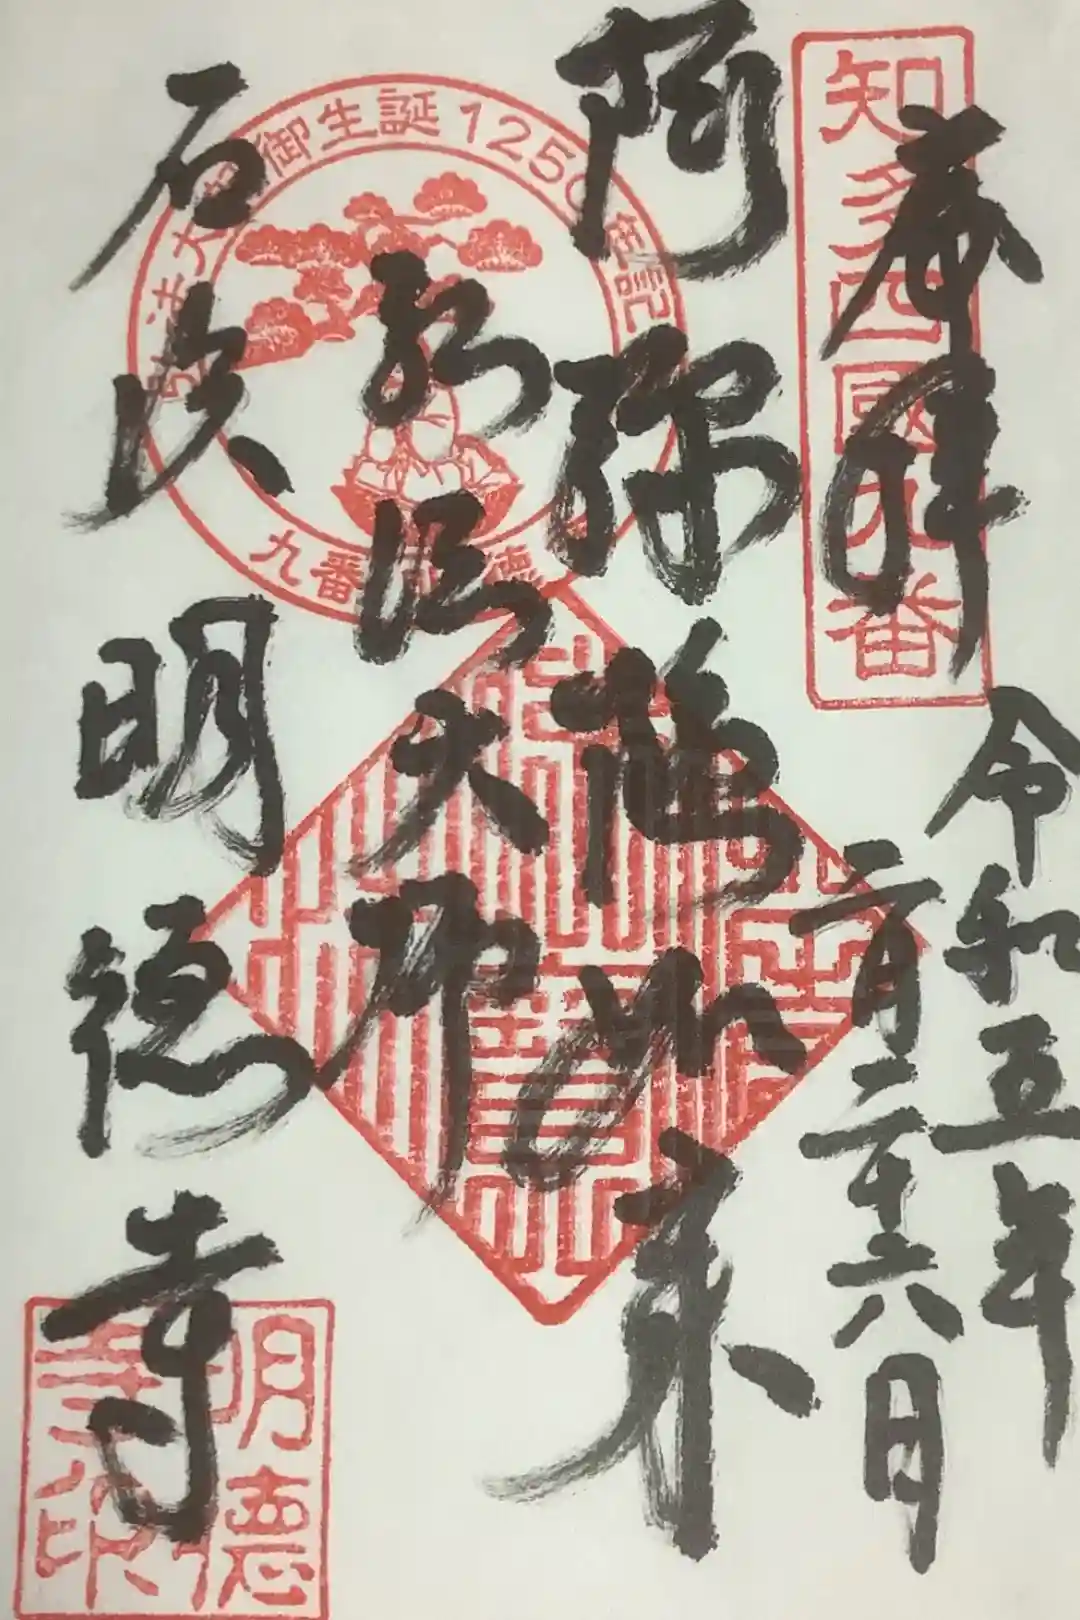 知多四國九番
奉拝
令和五年
二月二十六日
阿弥陀如来
弘法大師
石浜
明徳寺
弘法大師御生誕1250年記
九番 明徳
明徳寺印